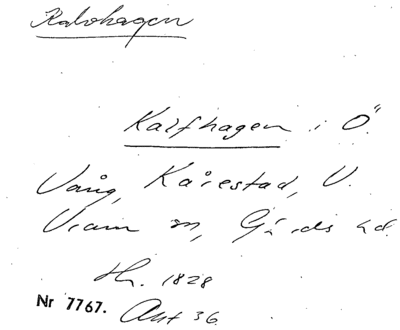 Kalvhagen
Kalfhagen i Ö.
Vång, Kårestad, V.
Vram sn, Gärds hd.
Hr. 1828
Nr 7767. Akt 36